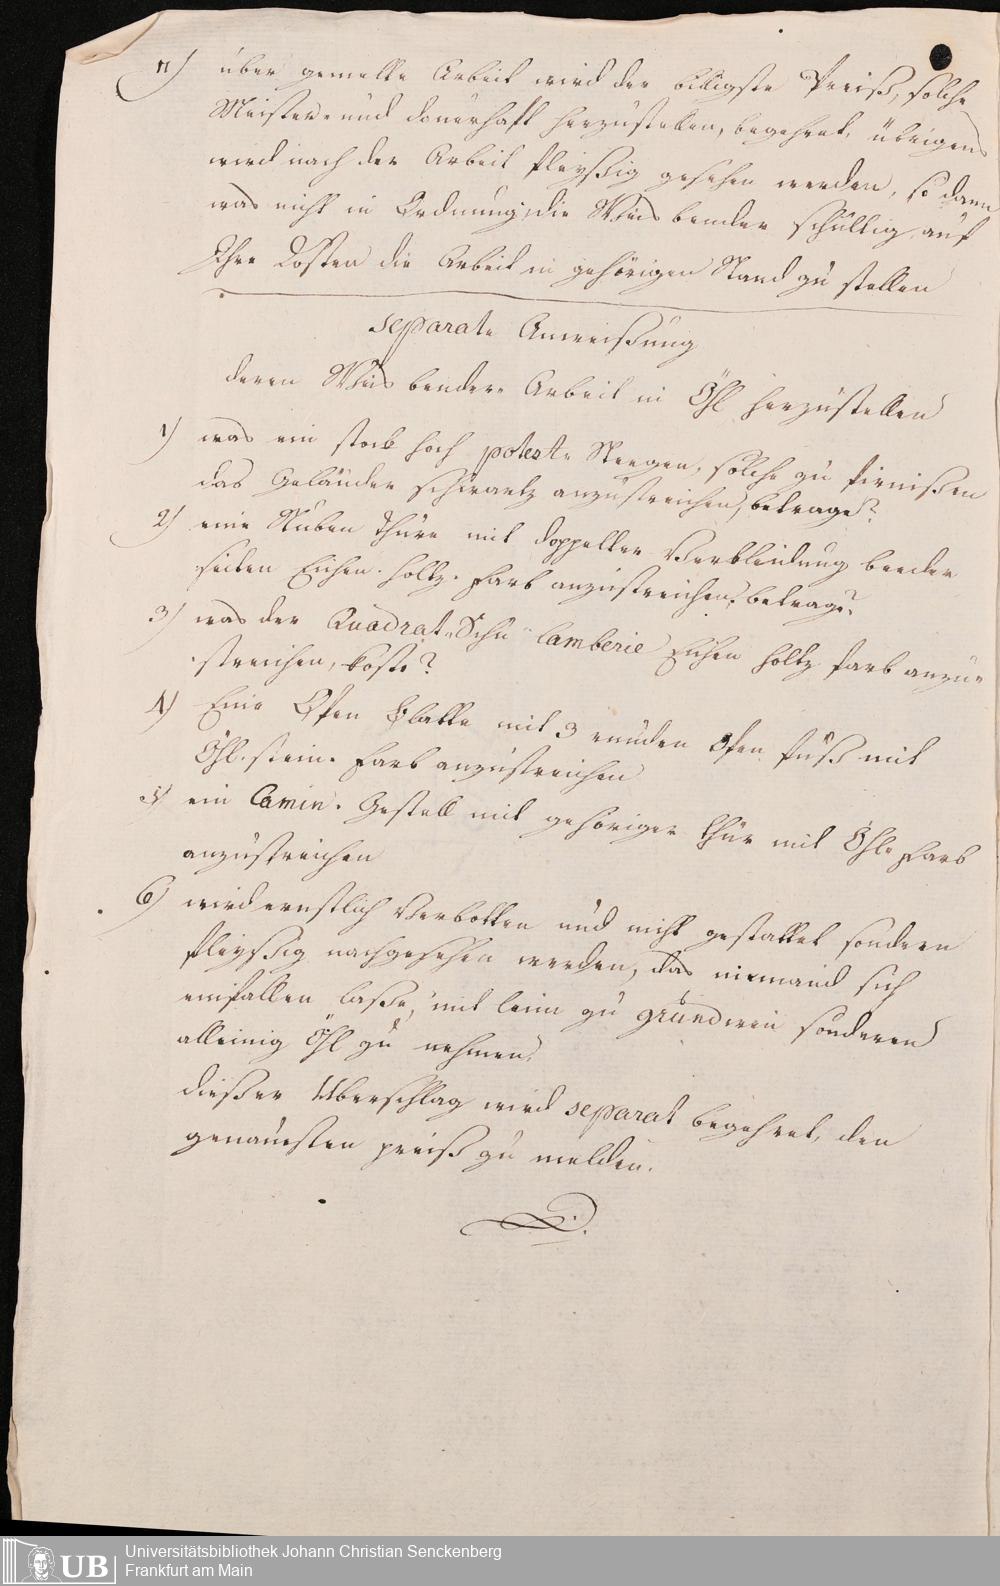 11) über gemelte Arbeit wird der billigste Preiß, solche
Meister- und dauerhaft herzustellen, begehret, übrigens
wird nach der Arbeit fleyßig gesehen werden, so dann
was nicht in Ordnung, die Weis bender schultig auf
Ihre Kosten die Arbeit in gehörigen Stand zu stellen
separate Anweißung
deren Weis bender Arbeit in Öhl herzustellen
1) was ein stock hoch potest Steegen, solche zu firnißen
das Geländer schwartz anzustreichen, betrage?
2) eine Stuben Thüre mit doppelter Verkleidung beeder
seiten Eichen-holtz-farb anzustreichen, betrage?
3) was der Quadrat-Schu Lamberie Eichen holtz farb anzu-
streichen, koste?
4) Eine Ofen Platte mit 3 runden Ofen fuß mit
Öhl-stein-farb anzustreichen
5) ein Camin-Gestell mit gehöriger thür mit Öhl farb
anzustreichen
6) wird ernstlich Verbotten und nicht gestattet sondern
fleyßig nachgesehen werden, das niemand sich
einfallen laße, mit leim zu gründiren sonderen
alleinig Öhl zu nehmen,
dießer Uberschlag wird separat begehret, den
genauesten preiß zu melden.
UB Universitätsbibliothek Johann Christian Senckenberg
Frankfurt am Main